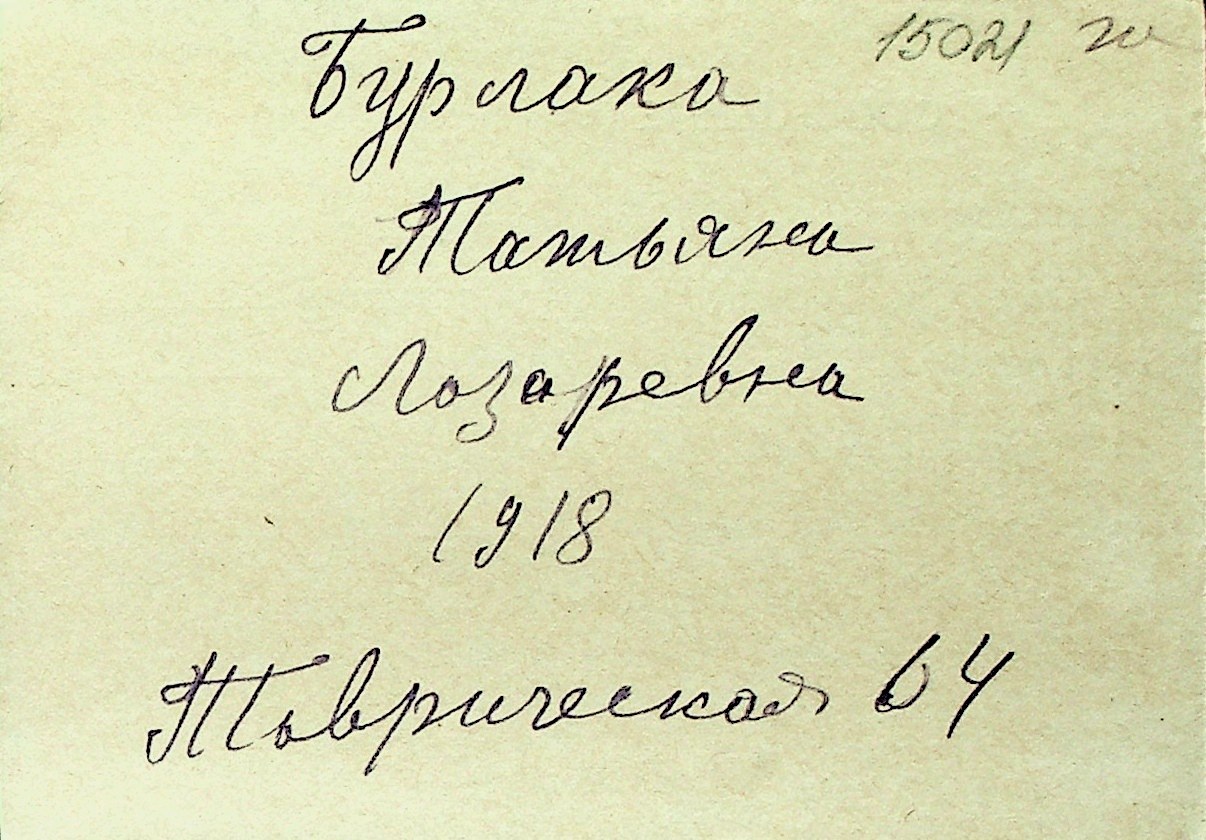 15021 ж
Бурлака
Татьяна
Лозаревна
1918
Таврическая 64